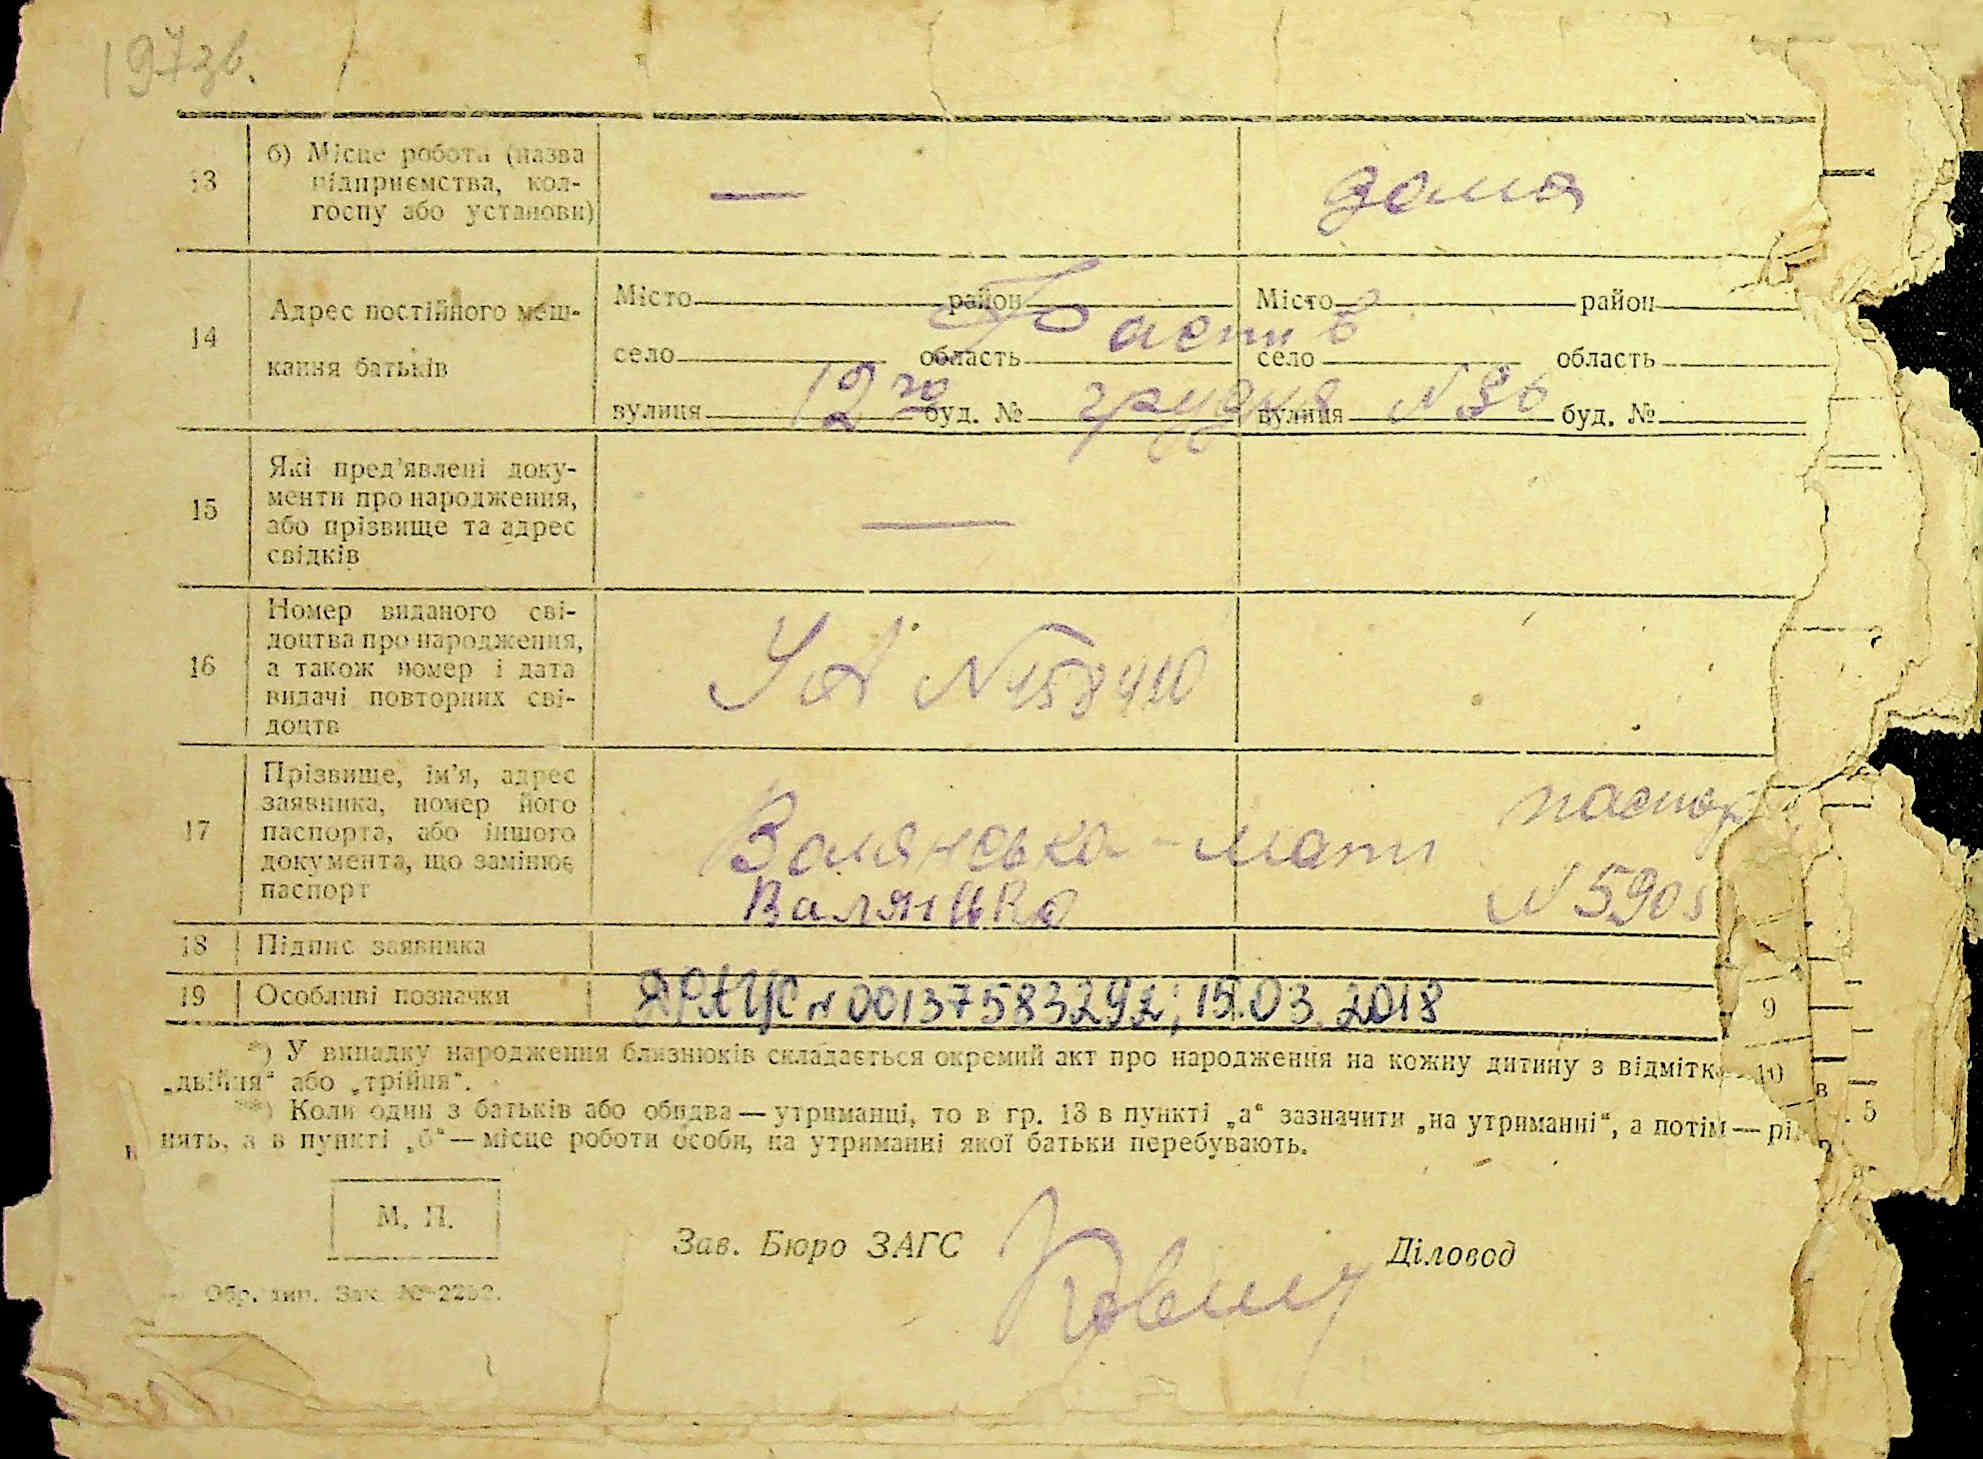 197зв.
13
б) Місце роботи (назва
підприємства, кол-
госпу або установи)
—
дома
14
Адрес постійного меш-
кання батьків
Місто район Місто район
Фастів
село область село область
вулиця буд. № вулиця буд. №
12 го грудня N 36
15
Які пред'явлені доку-
менти про народження,
або прізвище та адрес
свідків
—
16
Номер виданого сві-
доцтва про народження,
а також номер і дата
видачі повторних сві-
доцтв
УА N 158410
17
Прізвище, ім'я, адрес
заявника, номер його
паспорта, або іншого
документа, що замінює
паспорт
Валянська - мати
паспор
N 5905
Валянська
18 Підпис заявника
19 Особливі позначки
ДРАЦС N 00137583292; 15.03.2018
*) У випадку народження близнюків складається окремий акт про народження на кожну дитину з відмітк
„двійня“ або „трійня“.
**) Коли один з батьків або обидва — утриманці, то в гр. 13 в пункті „а“ зазначити „на утриманні“, а потім — рі
нять, а в пункті „б“ — місце роботи особи, на утриманні якої батьки перебувають.
9
10
в
5
М. П.
Зав. Бюро ЗАГС
Діловод
Обр. тип. Зак. №